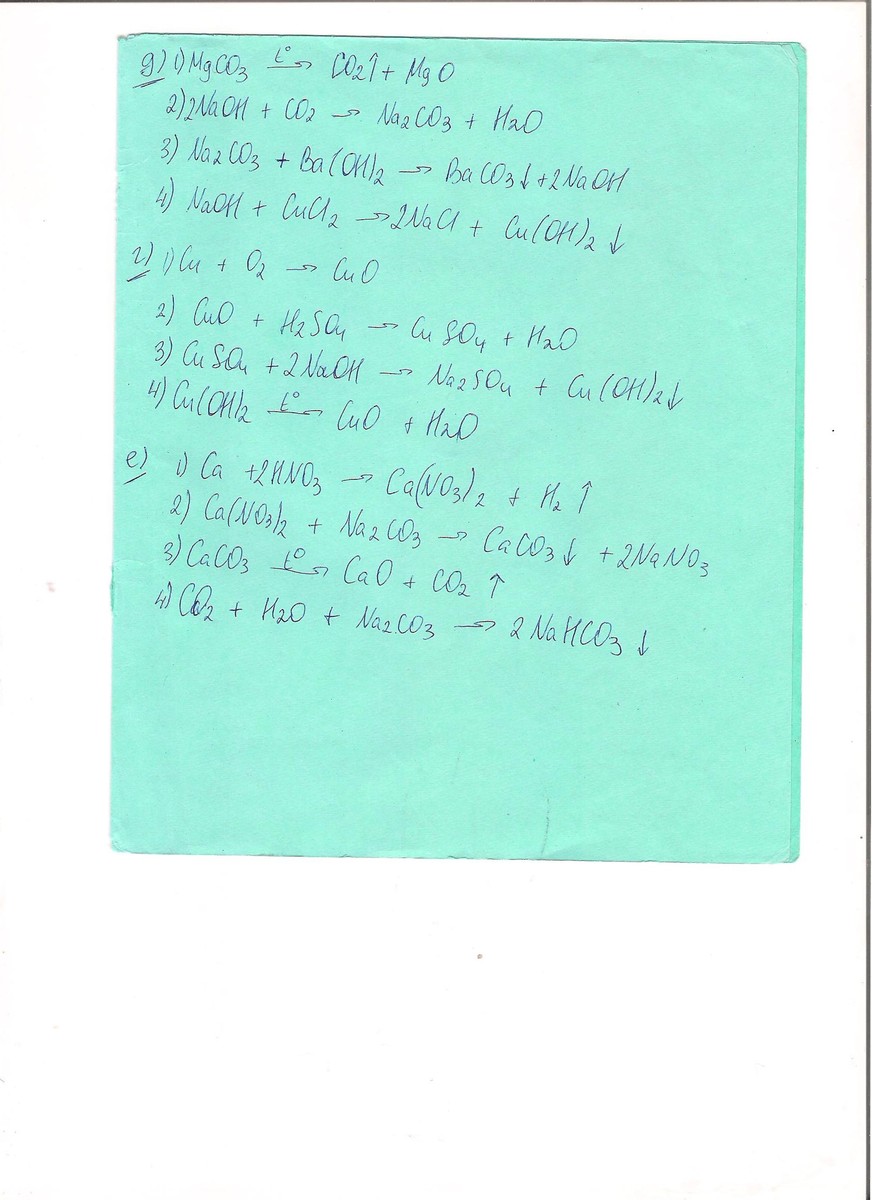 д) 1) MgCO3 t°→ CO2↑ + MgO
2) 2NaOH + CO2 → Na2CO3 + H2O
3) Na2CO3 + Ba(OH)2 → BaCO3↓ + 2NaOH
4) NaOH + CuCl2 → 2NaCl + Cu(OH)2↓
г) 1) Cu + O2 → CuO
2) CuO + H2SO4 → CuSO4 + H2O
3) CuSO4 + 2NaOH → Na2SO4 + Cu(OH)2↓
4) Cu(OH)2 t°→ CuO + H2O
е) 1) Ca + 2HNO3 → Ca(NO3)2 + H2↑
2) Ca(NO3)2 + Na2CO3 → CaCO3↓ + 2NaNO3
3) CaCO3 t°→ CaO + CO2↑
4) CO2 + H2O + Na2CO3 → 2NaHCO3↓